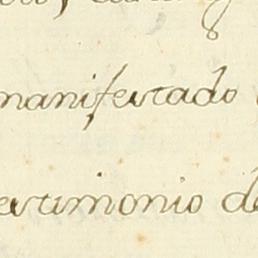 manifestado
estimonio de